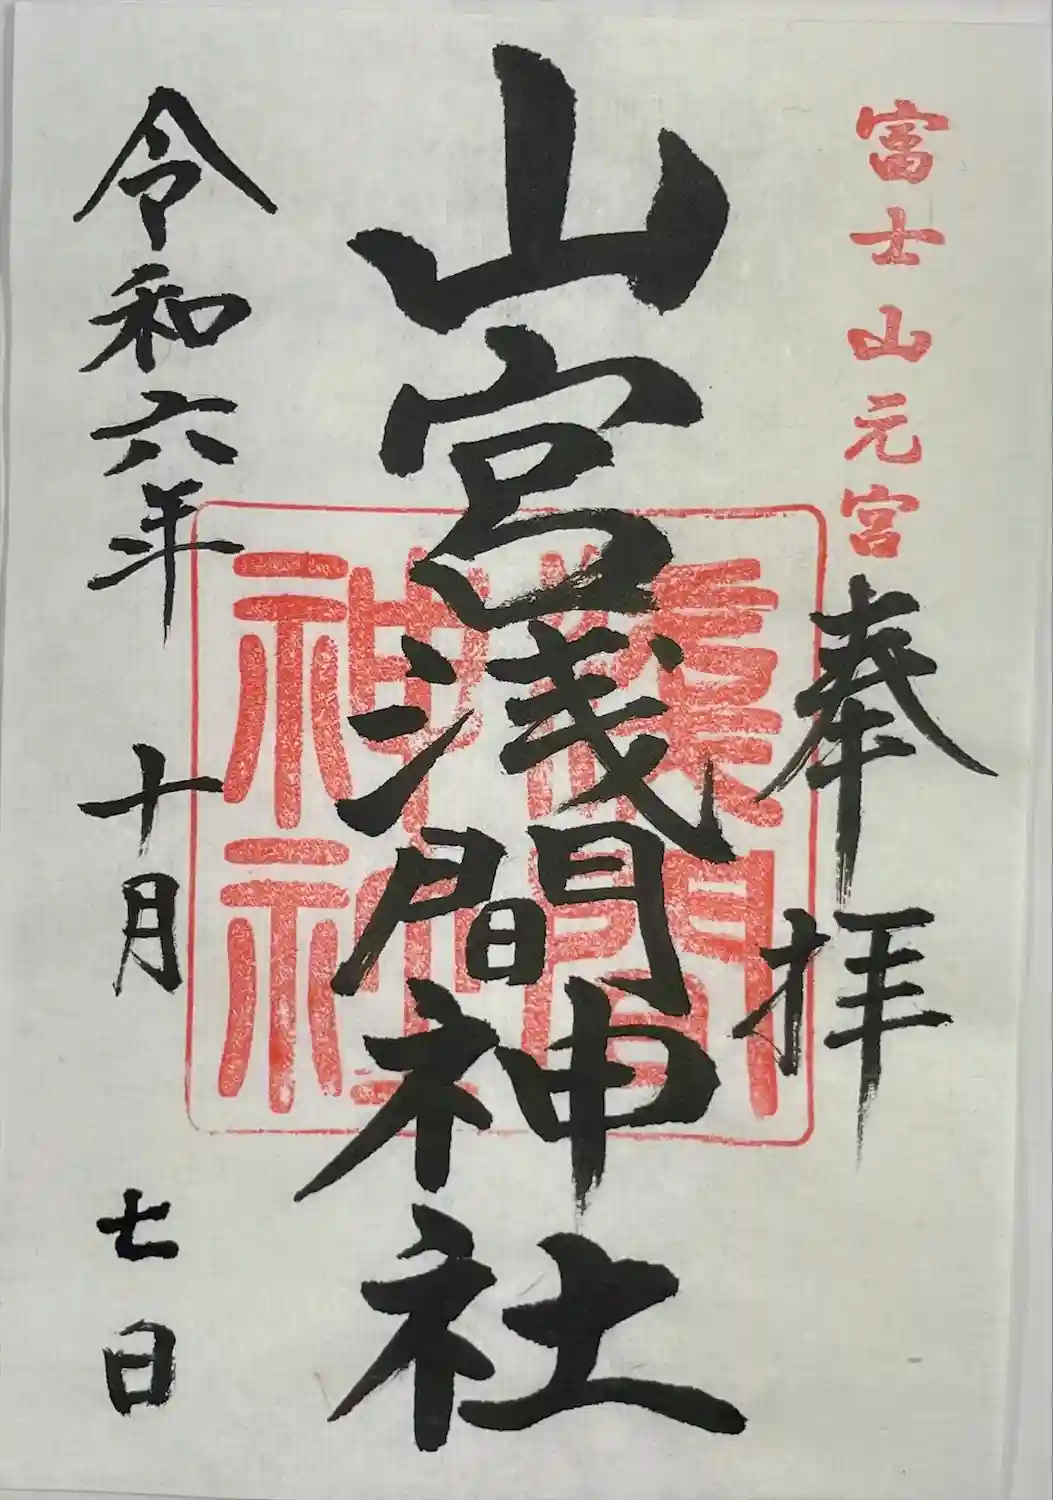 富士山元宮
奉拝
山宮浅間神社
浅間
神社
令和六年十月七日